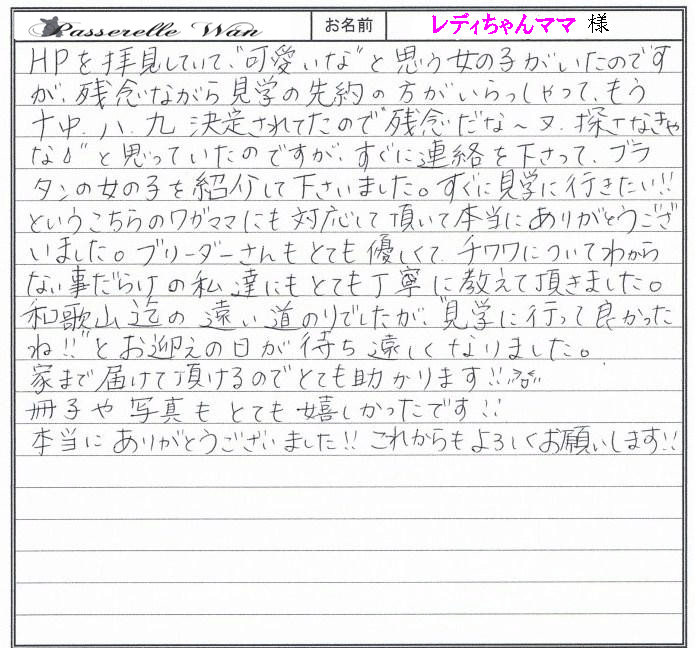 Passerelle Wan お名前 レディちゃんママ 様
HPを拝見していて、"可愛いな"と思う女の子がいたのです
が、残念ながら見学の先約の方がいらっしゃって、もう
十中、八、九 決定されてたので"残念だな〜又、探さなきゃ
な。"と思っていたのですが、すぐに連絡を下さって、ブラ
タンの女の子を紹介して下さいました。すぐに見学に行きたい!!
というこちらのワガママにも対応して頂いて本当にありがとうござ
いました。ブリーダーさんもとても優しくて、チワワについてわから
ない事だらけの私達にもとても丁寧に教えて頂きました。
和歌山迄の遠い道のりでしたが、"見学に行って良かった
ね!!"とお迎えの日が待ち遠しくなりました。
家まで届けて頂けるのでとても助かります!!
冊子や写真もとても嬉しかったです!!
本当にありがとうございました!!これからもよろしくお願いします!!